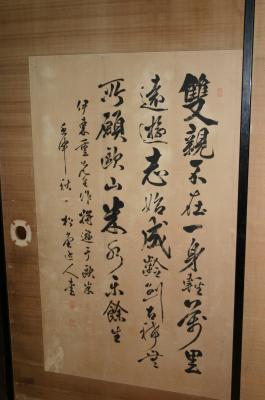 雙親不在一身輕萬里
遠遊志始成齡到古稀無
所願歐山米水樂餘生
伊東重先生作將遊于歐米
壬申秋一